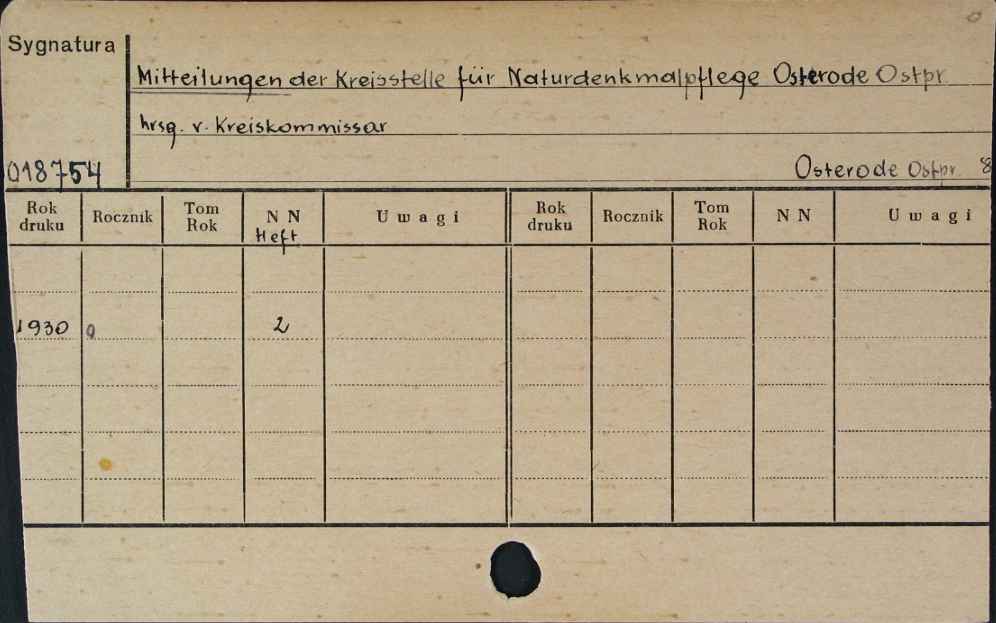 Sygnatura
Mitteilungen der Kreisstelle für Naturdenkmalpflege Osterode Ostpr.
hrsg. v. Kreiskommissar
018754
Osterode Ostpr. 8
Rok druku Rocznik Tom Rok N N Heft Uwagi Rok druku Rocznik Tom Rok N N Uwagi
1930 2